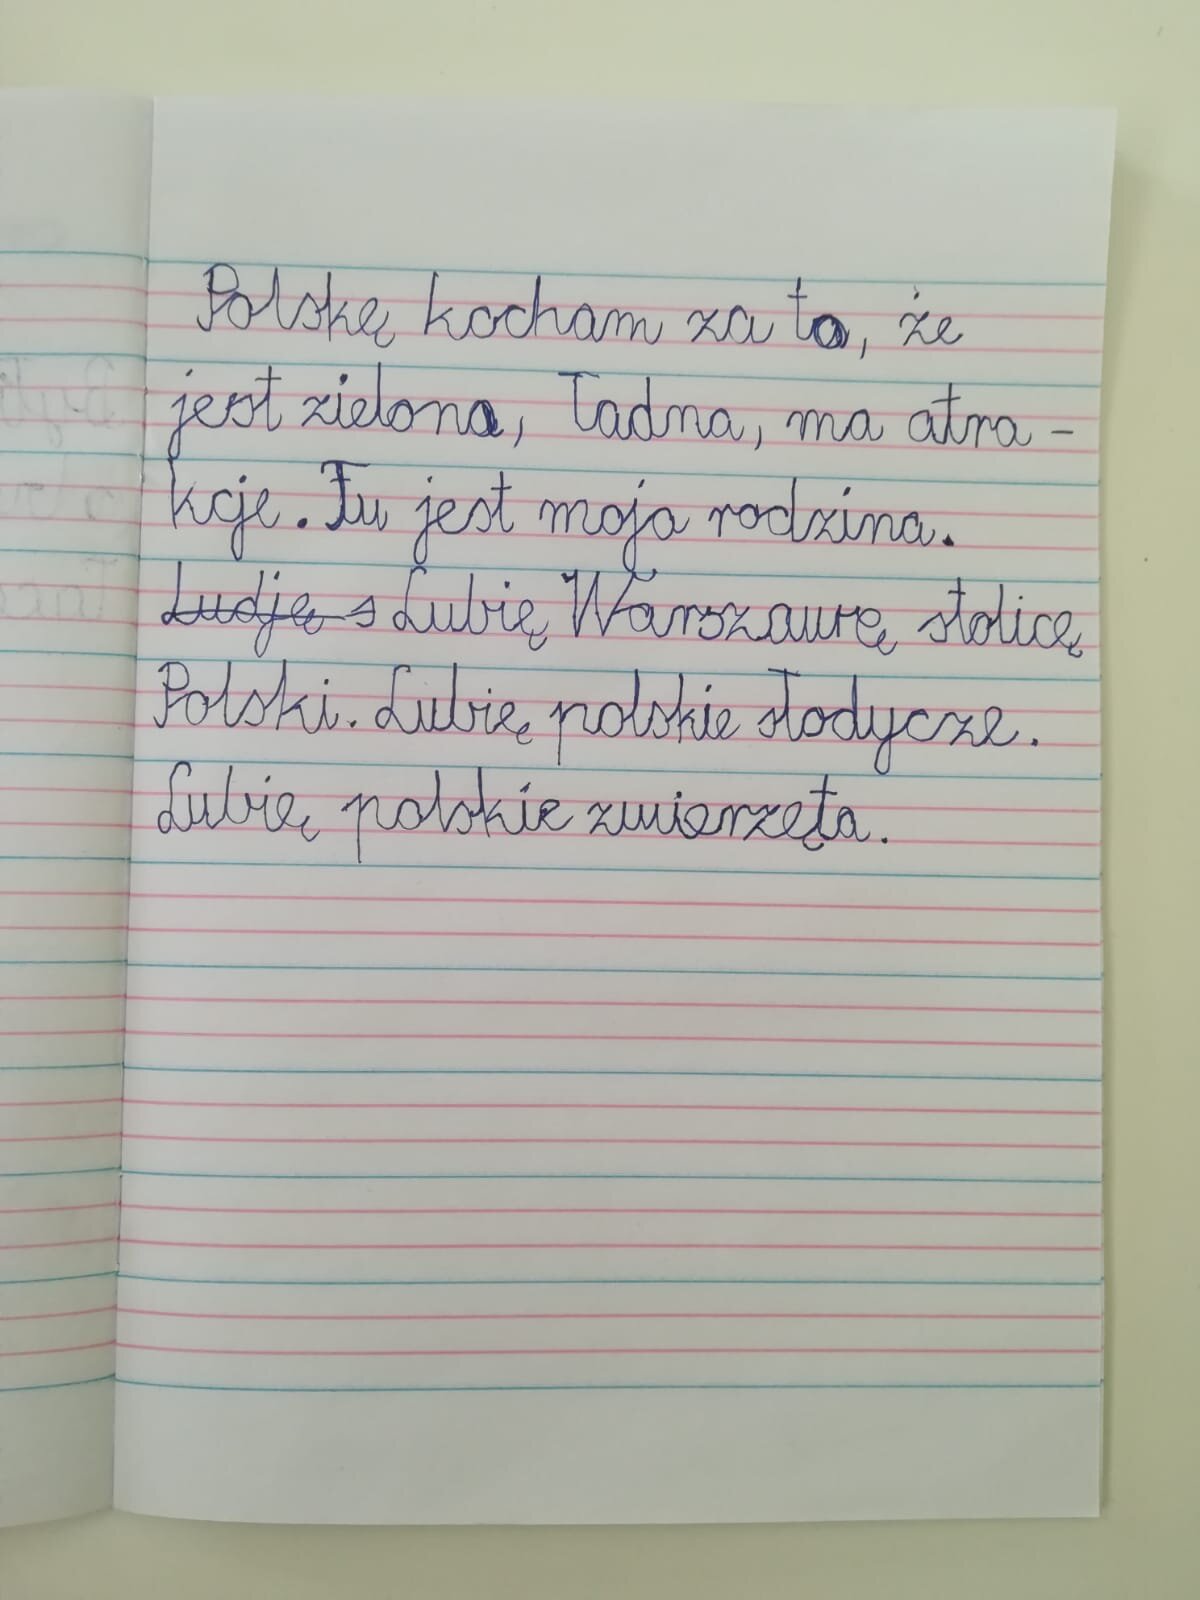 Polskę kocham za to, że
jest zielona, ładna, ma atra-
kcje. Tu jest moja rodzina.
Ludję s Lubię Warszawę stolicę
Polski. Lubię polskie słodycze.
Lubię polskie zwierzęta.